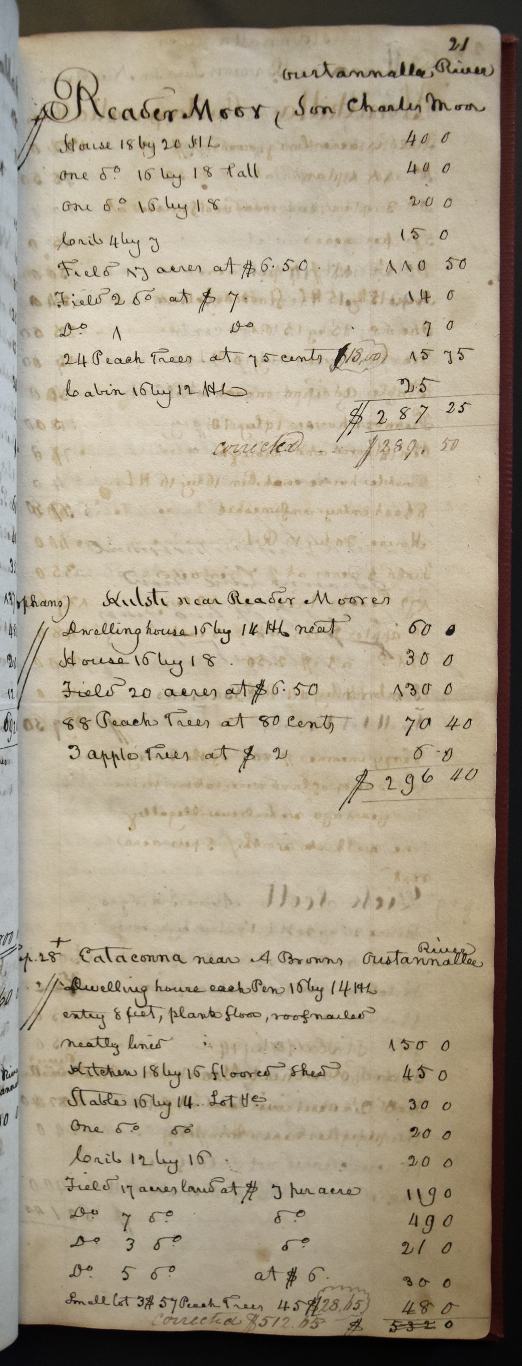 21
Oustannalla River
Reader Moor, Son Charles Moor
House 18 by 20 HL 40 0
one do 16 by 18 tall 40 0
one do 16 by 18 20 0
Crib 4 by 7 15 0
Field 17 acres at $6.50 110 50
Field 2 do at $7. 14 0
Do 1 Do 7 0
24 Peach Trees at 75 cents (18,00) 15 75
Cabin 16 by 12 HL 25
$ 287 25
corrected $289. 50
Kulsti near Reader Moores
Dwelling house 16 by 14 HL neat 60 0
House 16 by 18. 30 0
Field 20 acres at $6.50 130 0
88 Peach Trees at 80 cents 70 40
3 apple Trees at $ 2 6 0
$ 296 40
River
28 + Cataconna near A Browns Oustannallee
Dwelling house each Pen 16 by 14 HL
entry 8 feet, plank floor, roof nailed
neatly lined 150 0
Kitchen 18 by 16 floored shed 45 0
Stable 16 by 14. Lot &c 30 0
One do do 20 0
Crib 12 by 16 20 0
Field 17 acres land at $ 7 per acre 119 0
Do 7 do do 49 0
Do 3 do do 21 0
Do 5 do at $ 6. 30 0
Small lot 3$ 57 Peach Trees 45$ 48 0
corrected $512. $ 532 0